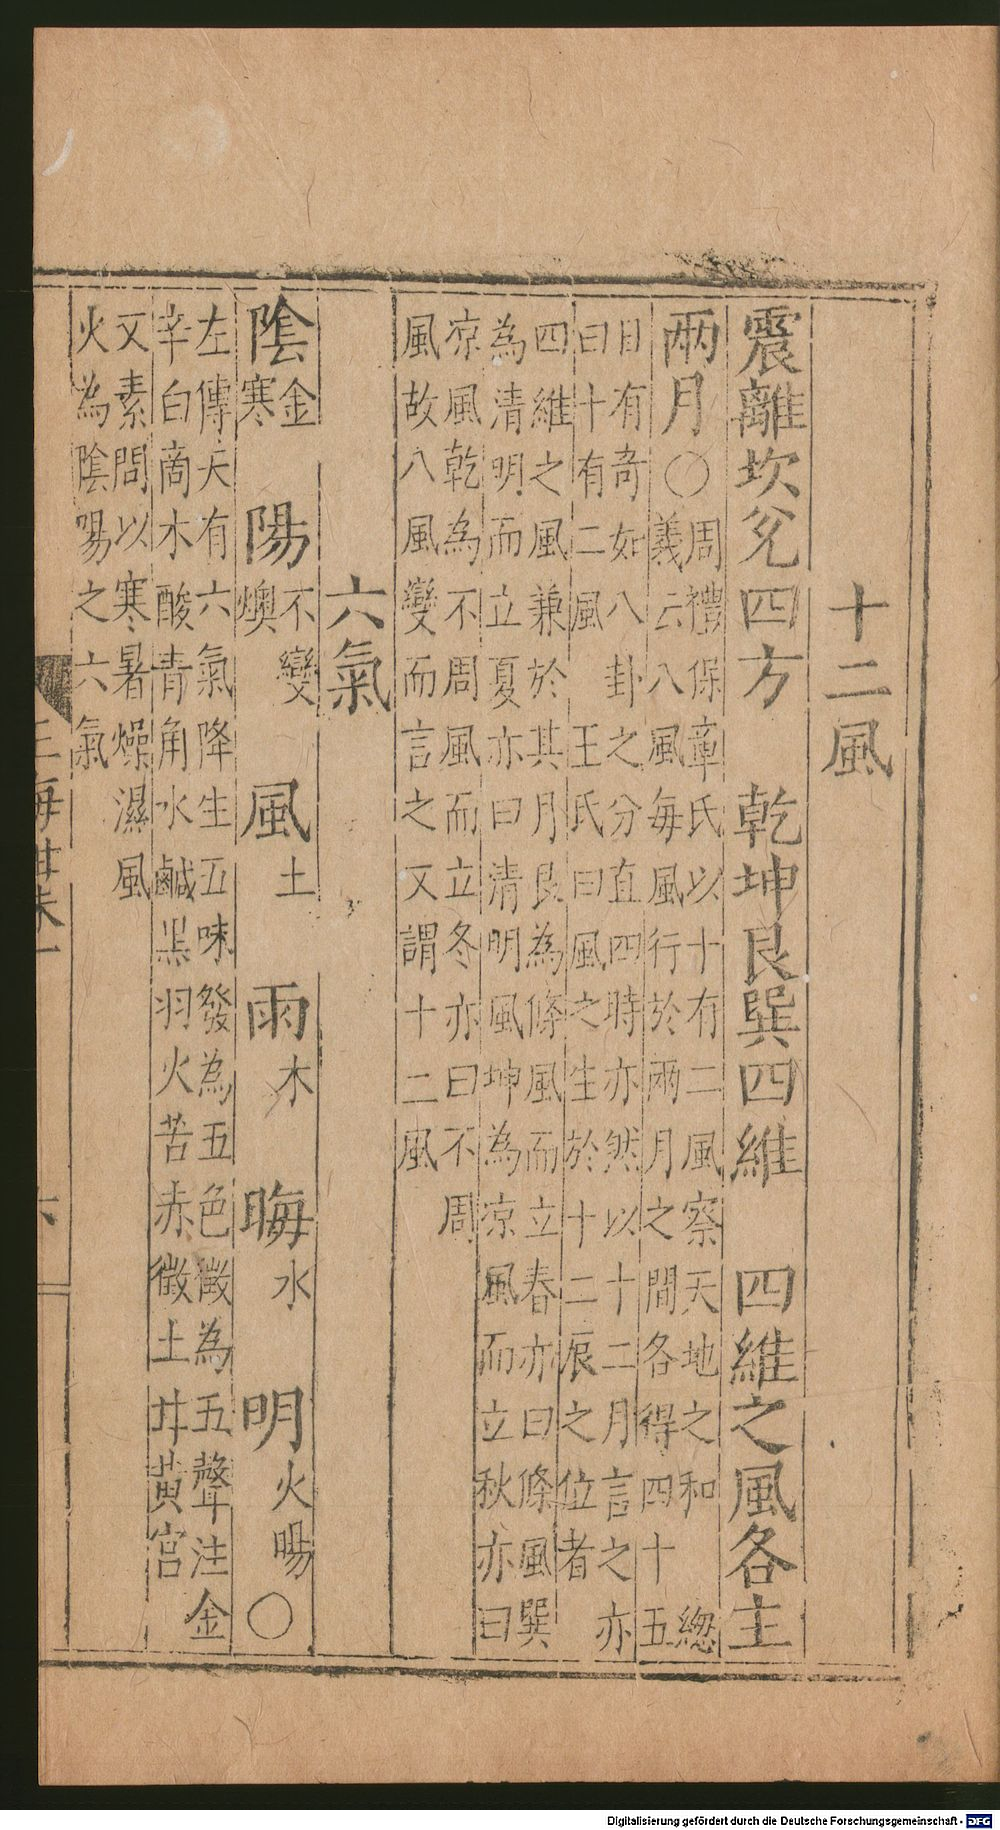 十二風
震離坎兌四方　乾坤艮巽四維　四維之風各主
兩月○周禮保章氏以十有二風察天地之和　總
義云八風每風行於兩月之間各得四十五
日有奇如八卦之分直四時亦然以十二月言之亦
曰十有二風　王氏曰風之生於十二辰之位者
四維之風兼於其月艮為條風而立春亦曰條風巽
為清明而立夏亦曰清明風坤為凉風而立秋亦曰
凉風乾為不周風而立冬亦曰不周
風故八風變而言之又謂十二風
六氣
陰金寒　陽不變燠　風土　雨木　晦水　明火暘○
左傳天有六氣降生五味發為五色徵為五聲注金
辛白商木酸青角水鹹黑羽火苦赤徵土甘黃宮
又素問以寒暑燥濕風
火為陰陽之六氣
玉海
六
Digitalisierung gefördert durch die Deutsche Forschungsgemeinschaft - DFG